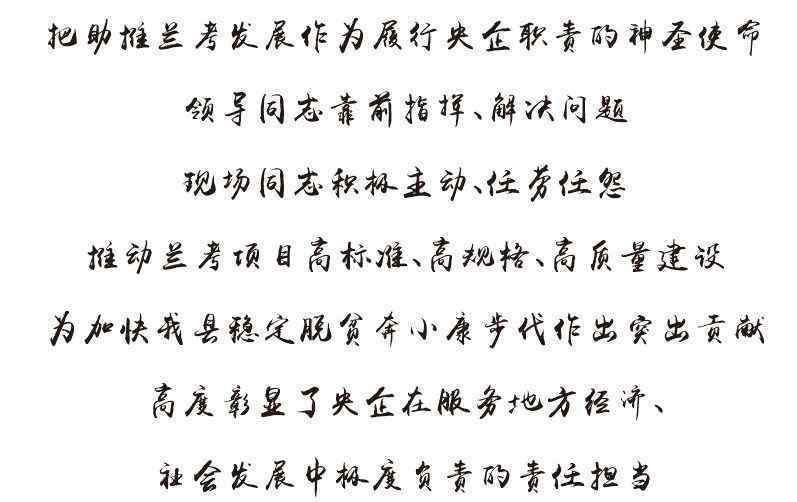 把助推兰考发展作为履行央企职责的神圣使命
领导同志靠前指挥、解决问题
现场同志积极主动、任劳任怨
推动兰考项目高标准、高规格、高质量建设
为加快我县稳定脱贫奔小康步伐作出突出贡献
高度彰显了央企在服务地方经济、
社会发展中极度负责的责任担当